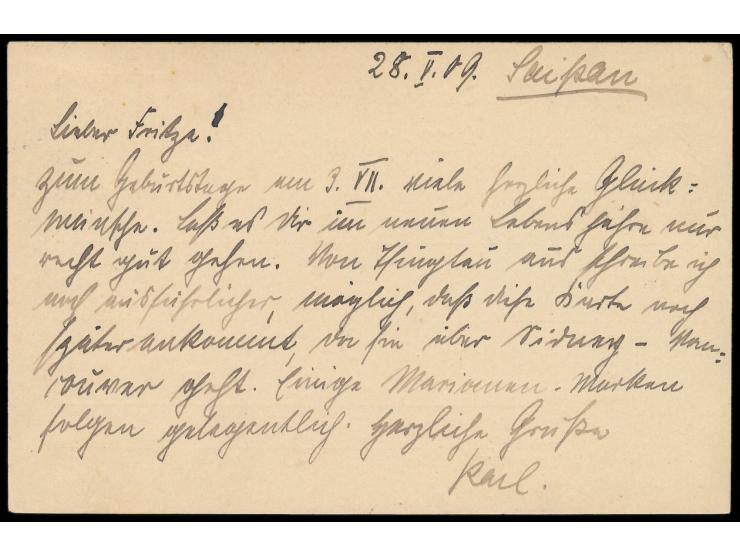 28. V. 09. Saipan
Lieber Fritze!
Zum Geburtstage am 3. VII. viele herzliche Glück-
wünsche. Laß es Dir im neuen Lebensjahre nur
recht gut gehen. Von Tsingtau aus schreibe ich
noch ausführlicher, möglich, daß diese Karte noch
später ankommt, da sie über Sidney - Van-
couver geht. Einige Marianen-Marken
folgen gelegentlich. Herzliche Grüße
Karl.